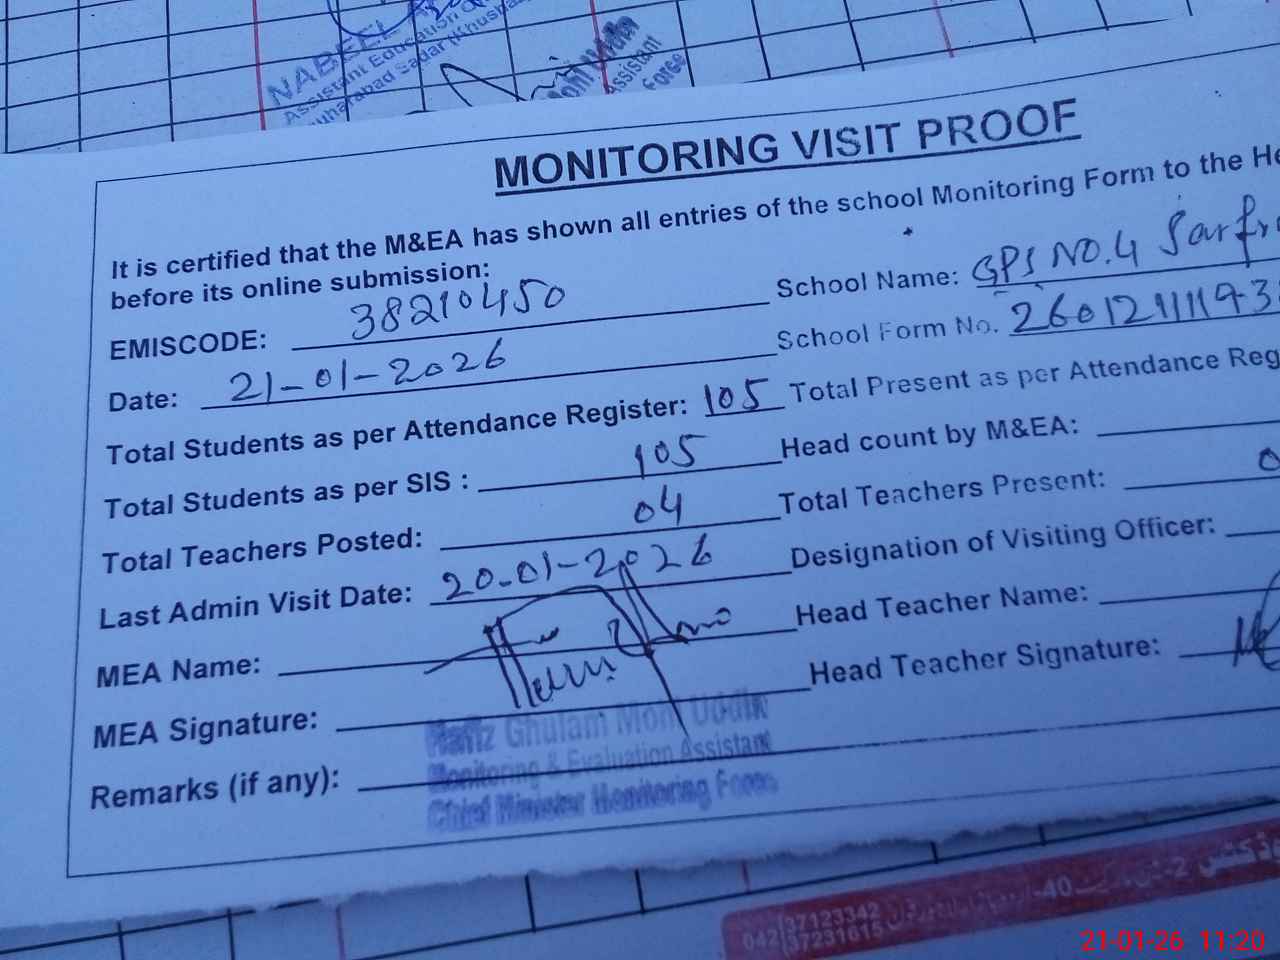 NABEEL
Assistant Education
Assistant
Force
MONITORING VISIT PROOF
It is certified that the M&EA has shown all entries of the school Monitoring Form to the He
before its online submission:
EMISCODE: 38210450 School Name: GPS NO.4 Sarfr
Date: 21-01-2026 School Form No.
Total Students as per Attendance Register: 105 Total Present as per Attendance Reg
Total Students as per SIS : 105 Head count by M&EA:
Total Teachers Posted: 04 Total Teachers Present: 0
Last Admin Visit Date: 20-01-2026 Designation of Visiting Officer:
MEA Name: Head Teacher Name:
MEA Signature: Head Teacher Signature:
Hafiz Ghulam Mohi Uddin
Remarks (if any):
Monitoring & Evaluation Assistant
Chief Minister Monitoring Force
042 37123342
37231615
21-01-26 11:20